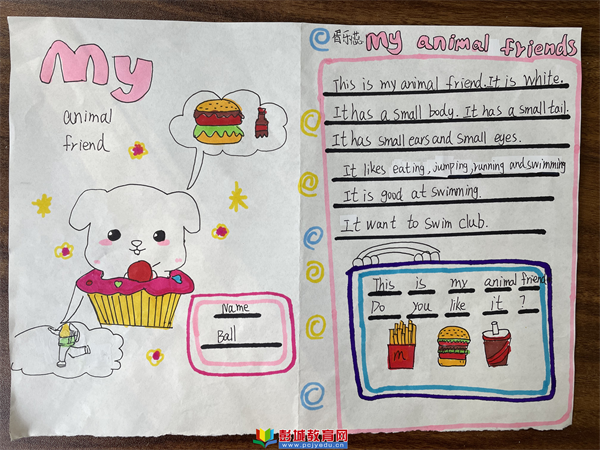 My
animal
friend
Name
Ball
乐蕊 My animal friends
This is my animal friend. It is white.
It has a small body. It has a small tail.
It has small ears and small eyes.
It likes eating, jumping, running and swimming
It is good at swimming.
It want to swim club.
This is my animal friend
Do you like it ?
m
彭城教育网
www.pcjyedu.cn